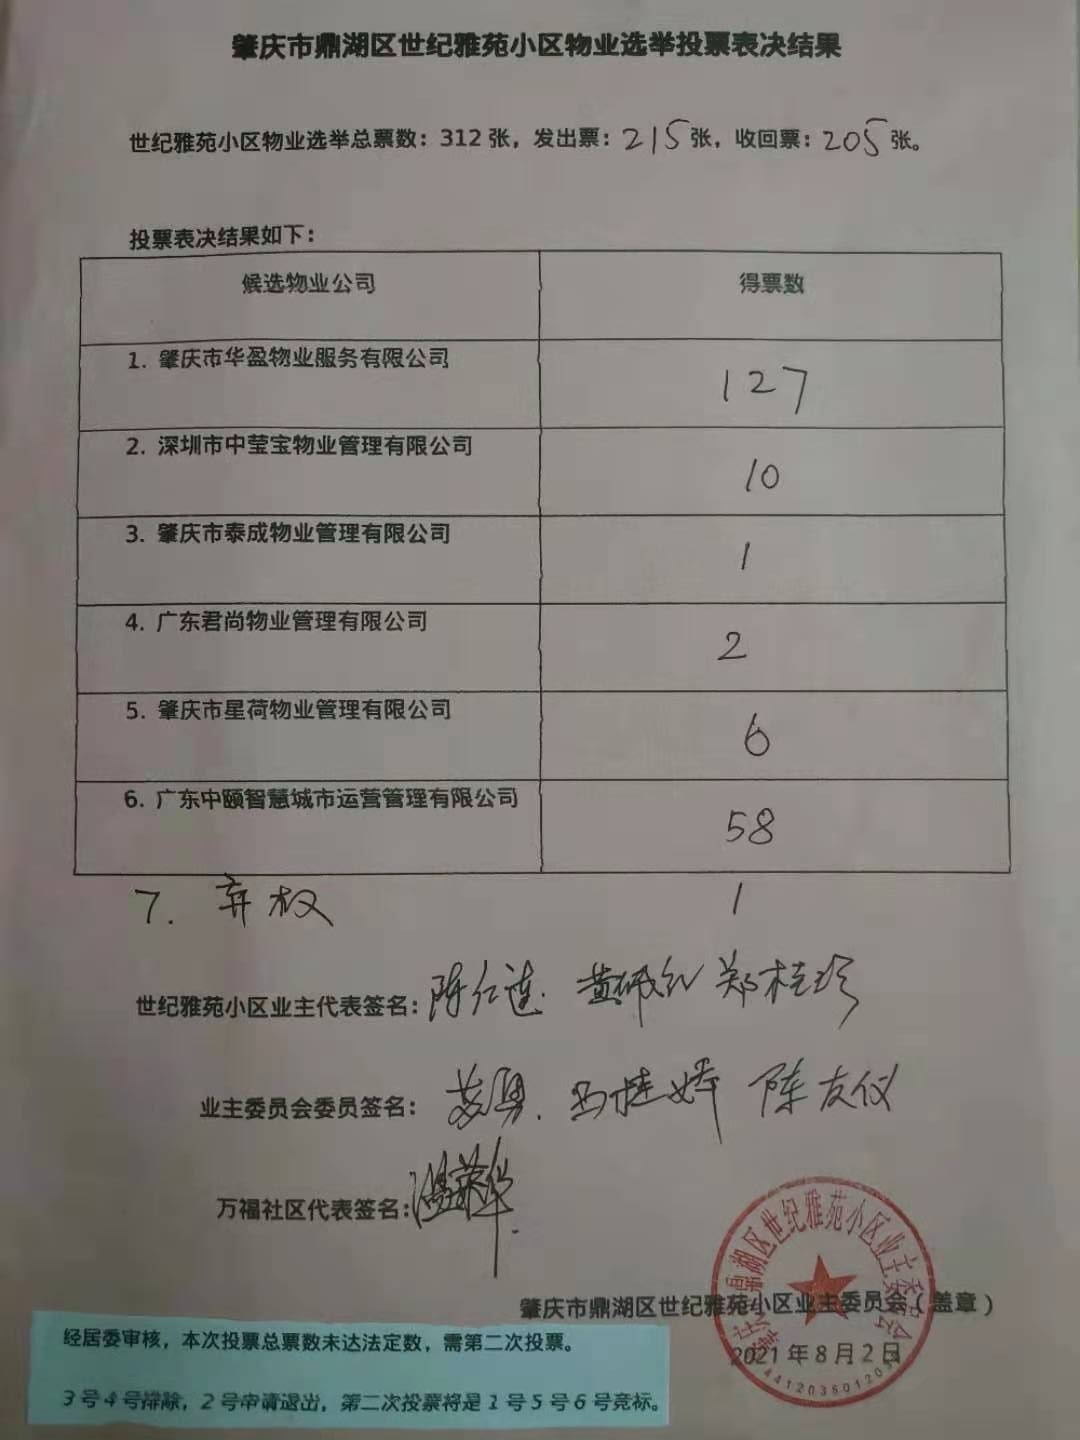 肇庆市鼎湖区世纪雅苑小区物业选举投票表决结果
世纪雅苑小区物业选举总票数：312 张，发出票：215张，收回票：205张。
投票表决结果如下：
候选物业公司 得票数
1. 肇庆市华盈物业服务有限公司 127
2. 深圳市中莹宝物业管理有限公司 10
3. 肇庆市泰成物业管理有限公司 1
4. 广东君尚物业管理有限公司 2
5. 肇庆市星荷物业管理有限公司 6
6. 广东中颐智慧城市运营管理有限公司 58
7. 弃权 1
世纪雅苑小区业主代表签名：陈仁莲. 黄佩红 郑桂珍
业主委员会委员签名： 陈友仪
万福社区代表签名：
肇庆市鼎湖区世纪雅苑小区业主委员会
肇庆市鼎湖区世纪雅苑小区业主委员会（盖章）
2021 年 8 月 2 日
经居委审核，本次投票总票数未达法定数，需第二次投票。
3号4号排除，2号申请退出，第二次投票将是1号5号6号竞标。